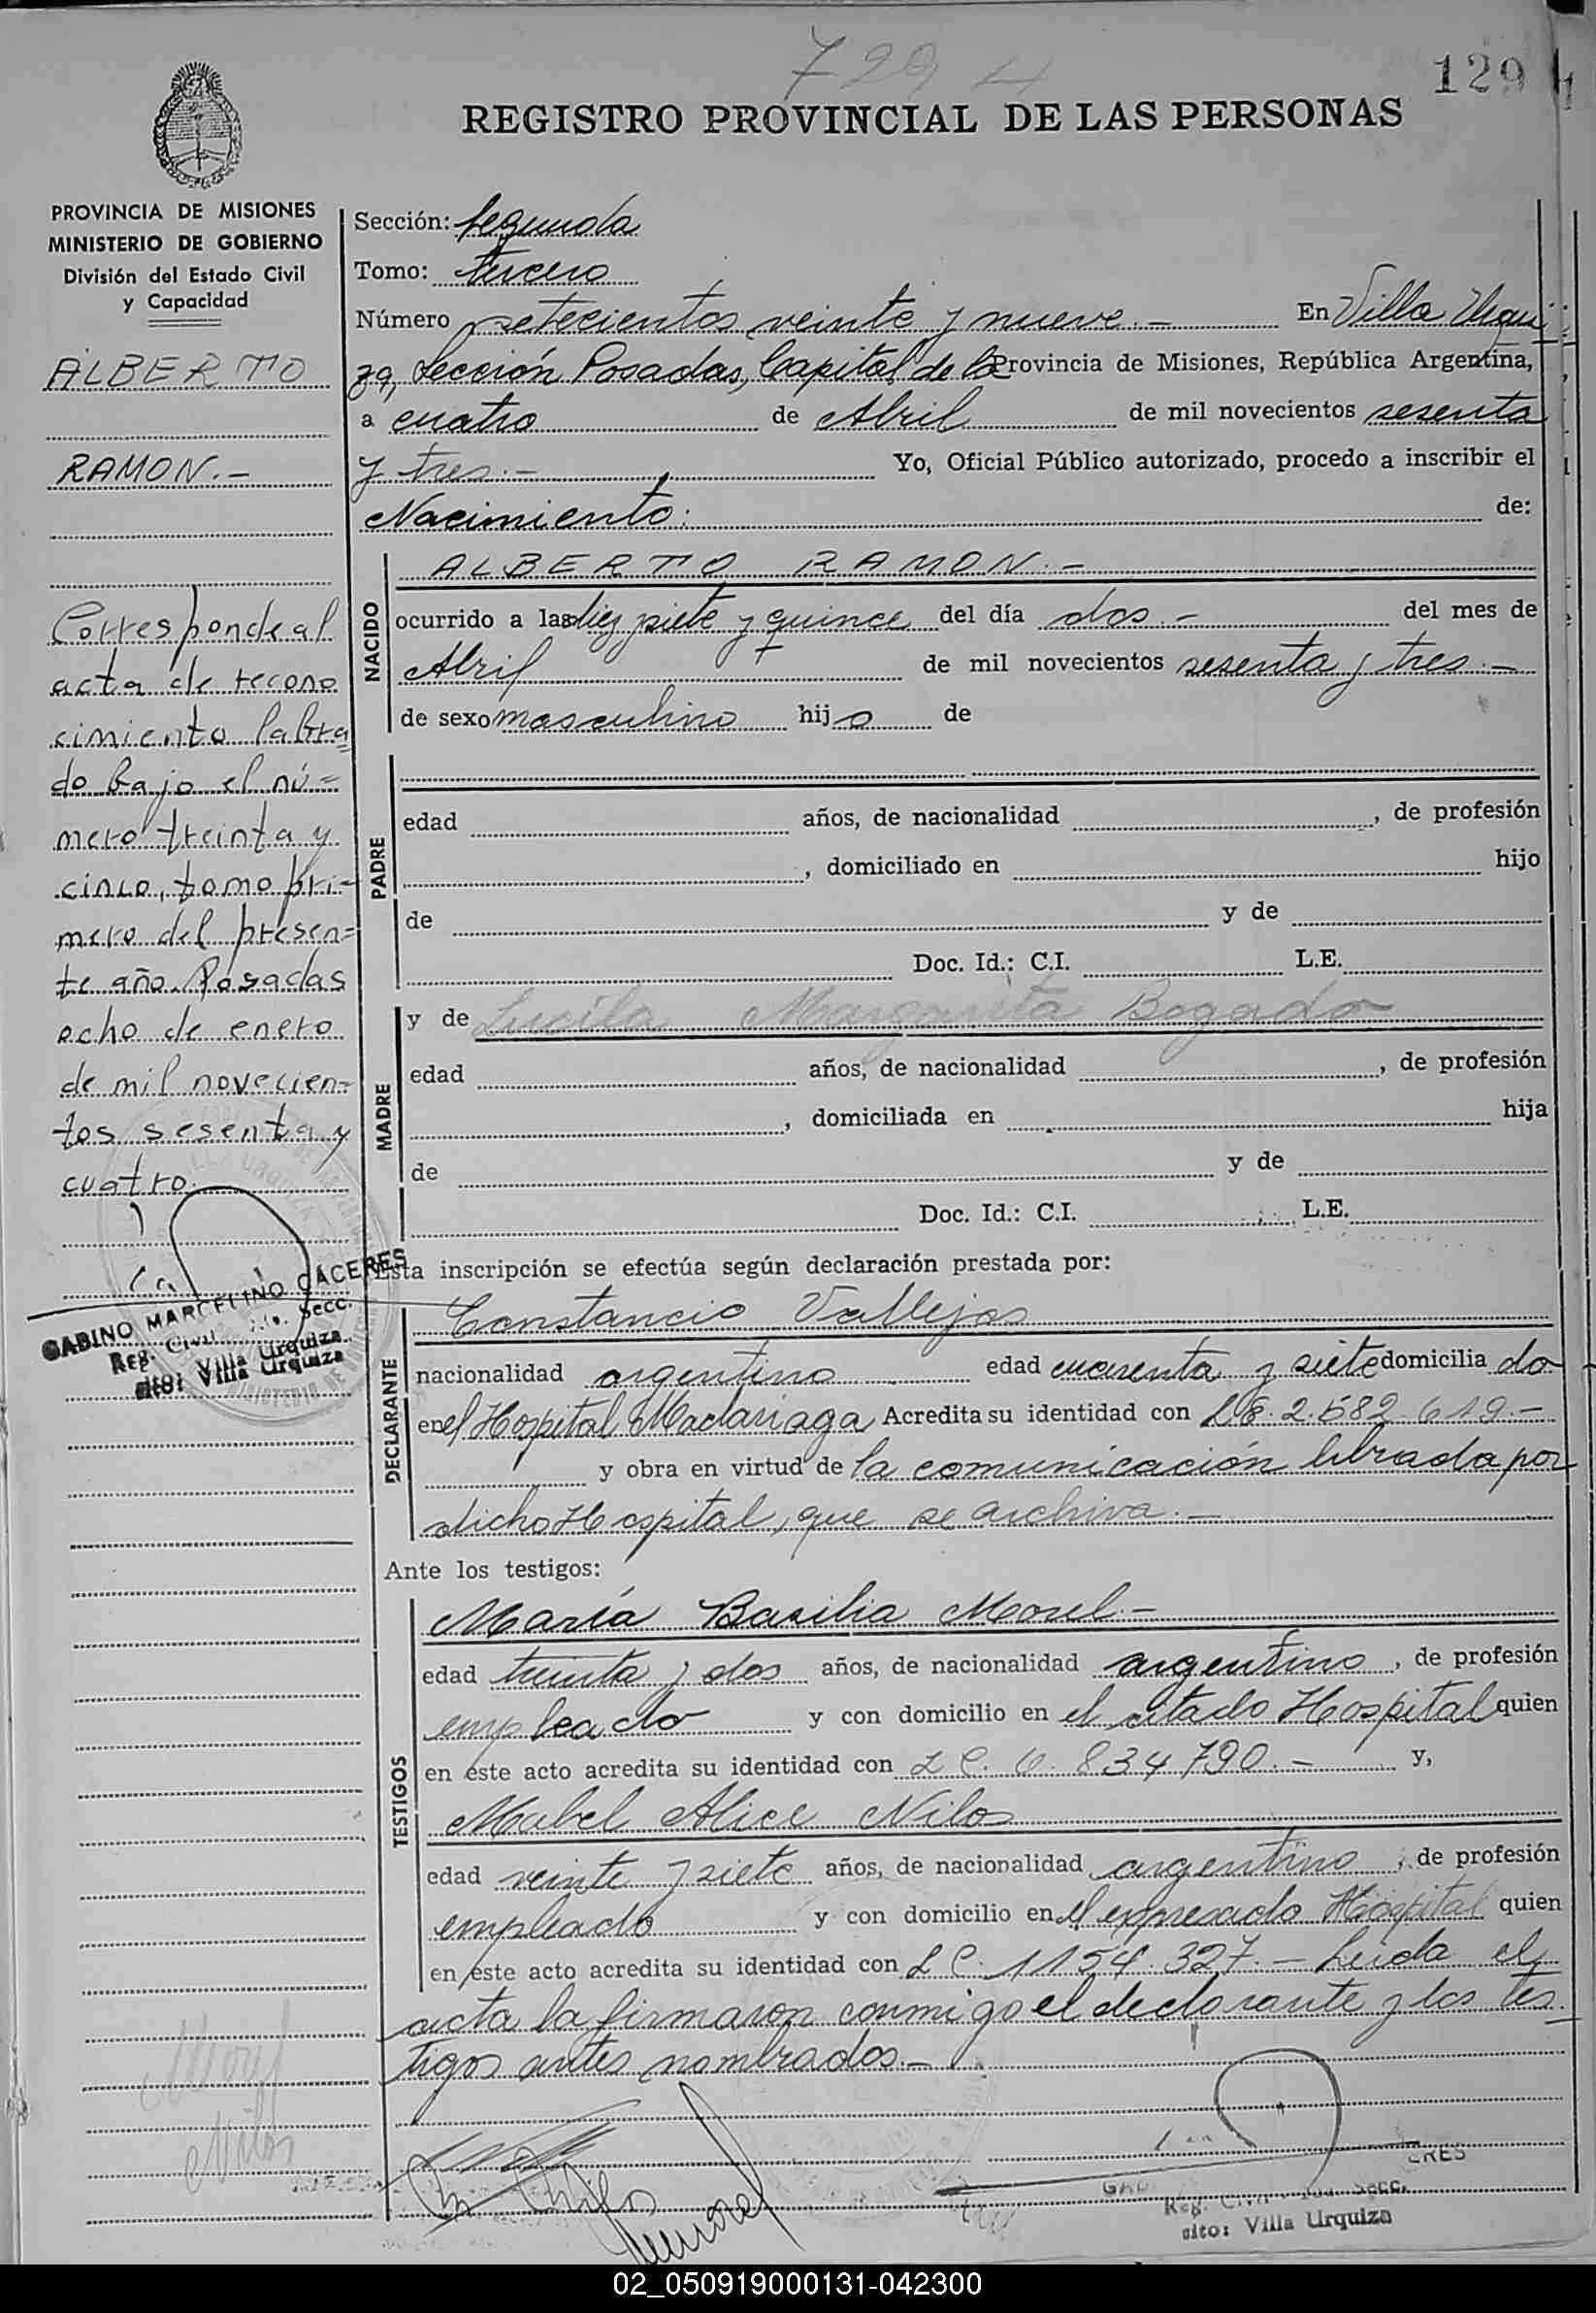 729
129
REGISTRO PROVINCIAL DE LAS PERSONAS
PROVINCIA DE MISIONES
MINISTERIO DE GOBIERNO
División del Estado Civil
y Capacidad
ALBERTO
RAMON.-
Corresponde al
acta de recono
cimiento labra
do bajo el nú=
mero treinta y
cinco, tomo pri-
mero del presen=
te año. Posadas
ocho de enero
de mil novecien=
tos sesenta y
cuatro.
GABINO MARCELINO CACERES
Reg. Civil Secc.
sito: Villa Urquiza
Sección: Segunda
Tomo: tercero
Número setecientos veinte y nueve.- En Villa Urqui
za, Sección Posadas, Capital de la Provincia de Misiones, República Argentina,
a cuatro de Abril de mil novecientos sesenta
y tres.- Yo, Oficial Público autorizado, procedo a inscribir el
Nacimiento: de:
NACIDO
ALBERTO RAMON.-
ocurrido a las diez siete y quince del día dos.- del mes de
Abril de mil novecientos sesenta y tres.-
de sexo masculino hijo de
PADRE
edad años, de nacionalidad , de profesión
, domiciliado en hijo
de y de
Doc. Id.: C.I. L.E.
MADRE
y de Lucila Margarita Bogado
edad años, de nacionalidad , de profesión
, domiciliada en hija
de y de
Doc. Id.: C.I. L.E.
Esta inscripción se efectúa según declaración prestada por:
DECLARANTE
Constancio Vallejos
nacionalidad argentino edad cuarenta y siete domicilia do
en el Hospital Madariaga Acredita su identidad con L.E. 2.582.619.-
y obra en virtud de la comunicación librada por
dicho Hospital, que se archiva.-
Ante los testigos:
TESTIGOS
María Basilia Morel.-
edad treinta y dos años, de nacionalidad argentino, de profesión
empleado y con domicilio en el citado Hospital quien
en éste acto acredita su identidad con L C. 6.834790.- y,
Mabel Alice Nilos
edad veinte y siete años, de nacionalidad argentino, de profesión
empleado y con domicilio en el expresado Hospital quien
en éste acto acredita su identidad con L C. 1154.327.- Leída el
acta la firmaron conmigo el declarante y los tes
tigos antes nombrados.-
Morel
Nilos
Reg. Civil Secc.
sito: Villa Urquiza
02_050919000131-042300